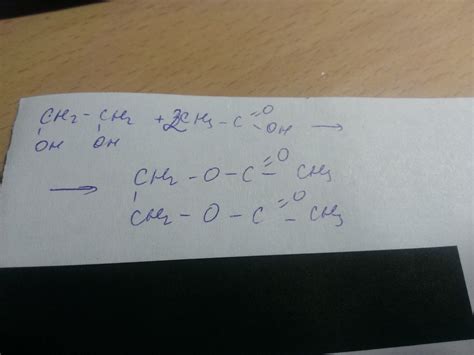 CH2 - CH2 + 2CH3 - C = O
OH OH OH →
→ CH2 - O - C = O CH3
CH2 - O - C = O - CH3